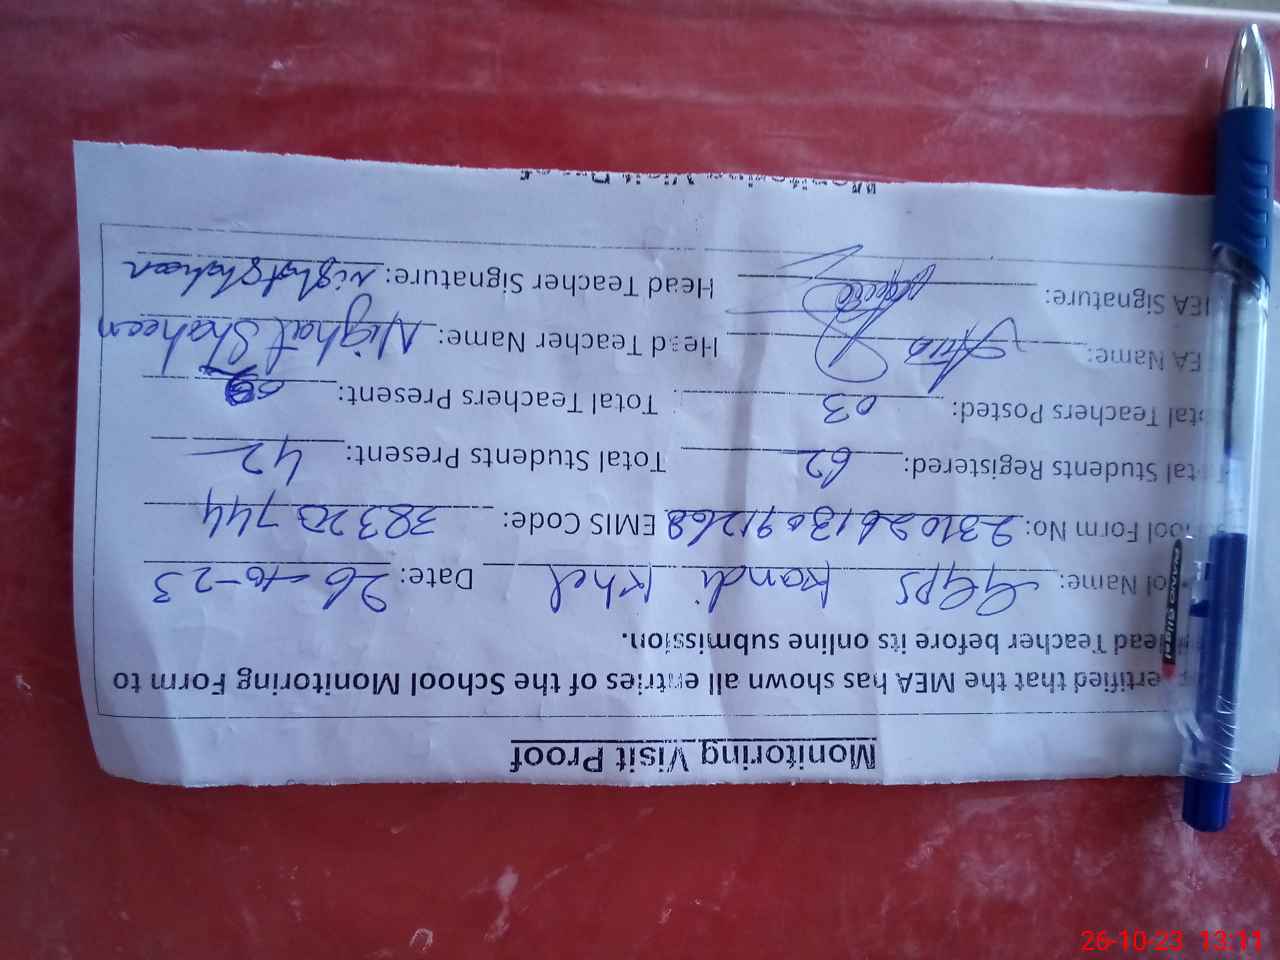 Monitoring Visit Proof
ertified that the MEA has shown all entries of the School Monitoring Form to
Head Teacher before its online submission.
ol Name: GGPS Kandi Khel Date: 26-10-23
ool Form No: EMIS Code:
tal Students Registered: 62 Total Students Present: 42
tal Teachers Posted: 03 Total Teachers Present:
EA Name: Head Teacher Name: Nighat Shaheen
MEA Signature: Head Teacher Signature: Nighat Shaheen
Monitoring Visit Proof
26-10-23 13:11